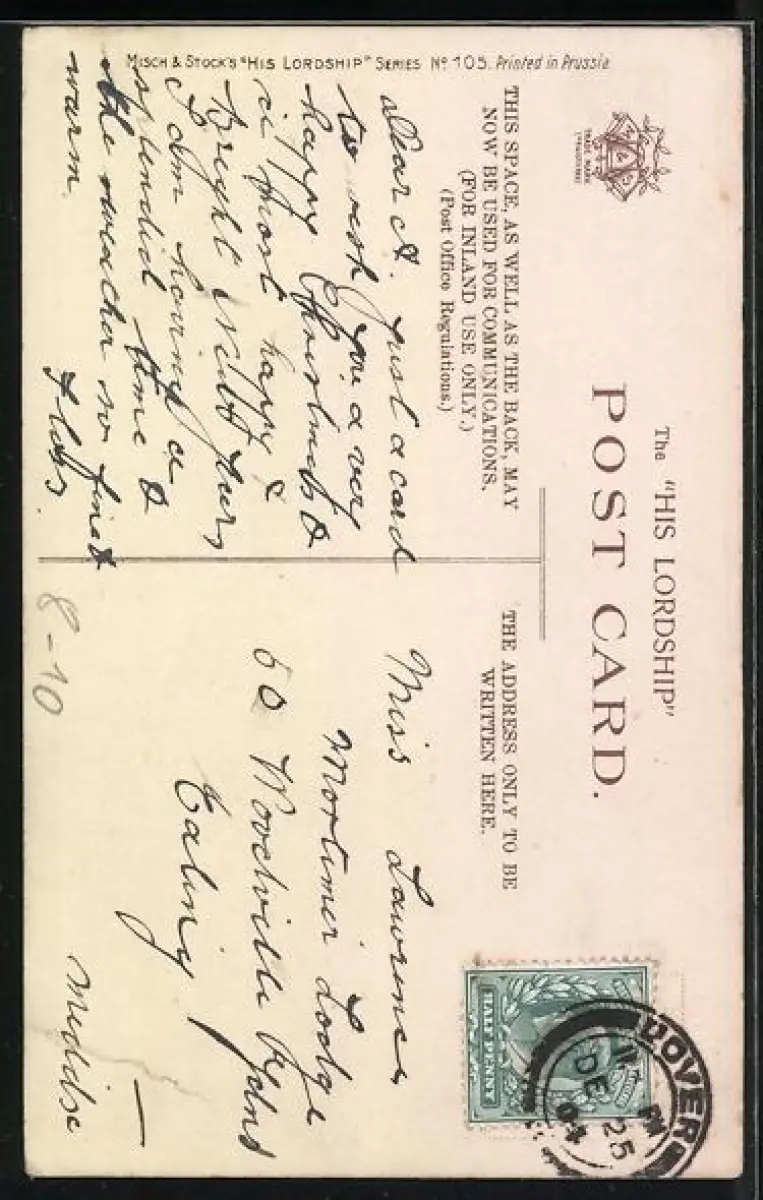 The "HIS LORDSHIP"
POST CARD.
TRADE MARK
THIS SPACE, AS WELL AS THE BACK, MAY
NOW BE USED FOR COMMUNICATIONS.
(FOR INLAND USE ONLY.)
(Post Office Regulations.)
THE ADDRESS ONLY TO BE
WRITTEN HERE.
HALF PENNY
DOVER
PM
DE 25
04
Dear A. Just a card
to wish you a very
happy Christmas &
a most happy &
Bright New Year,
I am having a
splendid time &
the weather so fine &
warm.
Floss.
Miss Lawrence
Mortimer Lodge
50 Woodville Gdns
Ealing
Middlse
8-10
MISCH & STOCK'S "HIS LORDSHIP" SERIES No 105. Printed in Prussia